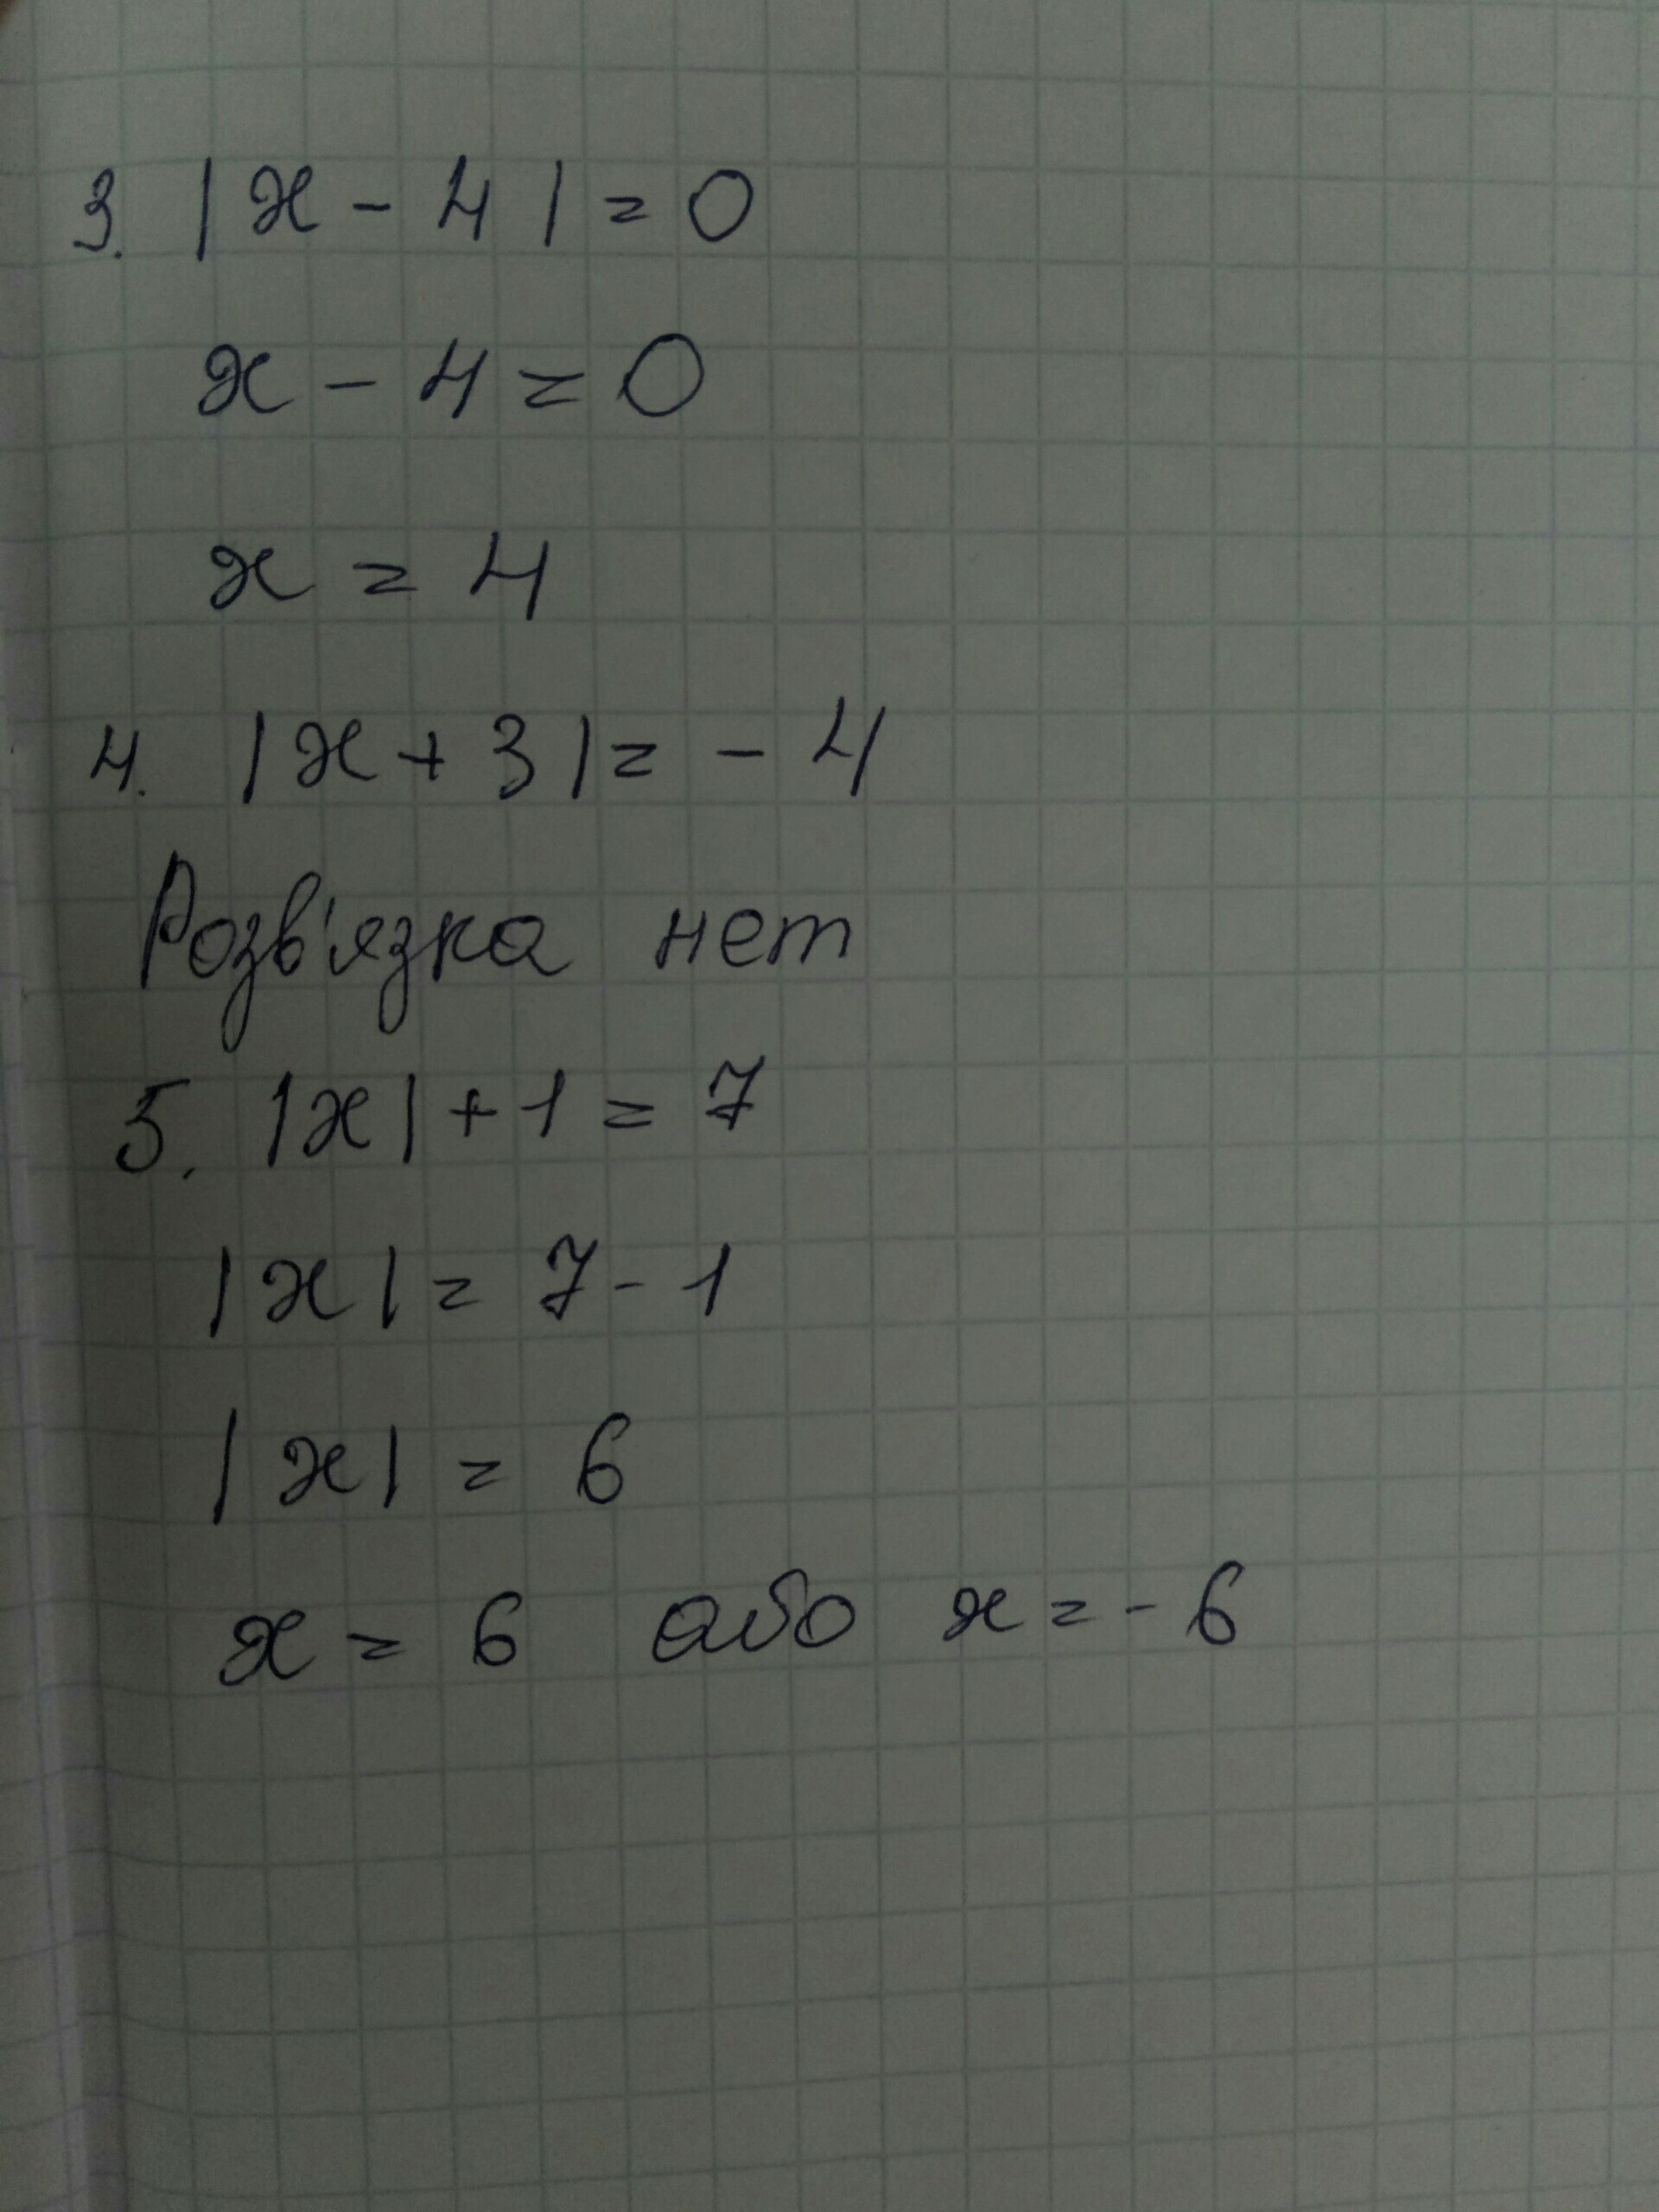 3. |x - 4| = 0
x - 4 = 0
x = 4
4. |x + 3| = - 4
Розв'язка нет
5. |x| + 1 = 7
|x| = 7 - 1
|x| = 6
x = 6 або x = - 6